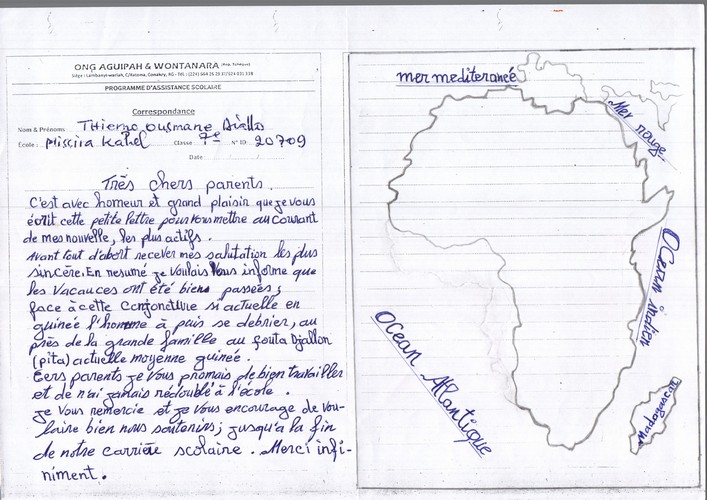 ONG AGUIPAH & WONTANARA
PROGRAMME D'ASSISTANCE SCOLAIRE
Correspondance
Nom & Prénoms Thierno Ousmane Diallo
École: Missira Kahel Classe 7e N° ID 20709
Date
Très chers parents.
C'est avec homeur et grand plaisir que je vous
écrit cette petite lettre pour vous mettre au courant
de mes nouvelle, les plus actifs.
Avant tout d'abort recever mes salutation les plus
sincère. En nesumé je voulais vous informe que
les vacances ont été biens passées;
face à cette conjonature si actuelle en
guinée l'homme à puis se debrier, au
près de la grande famille au fouta Djallon
(pita) actuelle moyenne guinée.
Cers parents je vous promais de bien travailler
et de n'ai jamais redoublé à l'école.
je vous remercie et je vous encourage de vou-
laire bien nous soutenirs; jusqu'a la fin
de notre carrière scolaire. Merci infi-
niment.
mer mediteranée
Mer rouge
Ocean indien
Ocean Atlantique
Madagascar